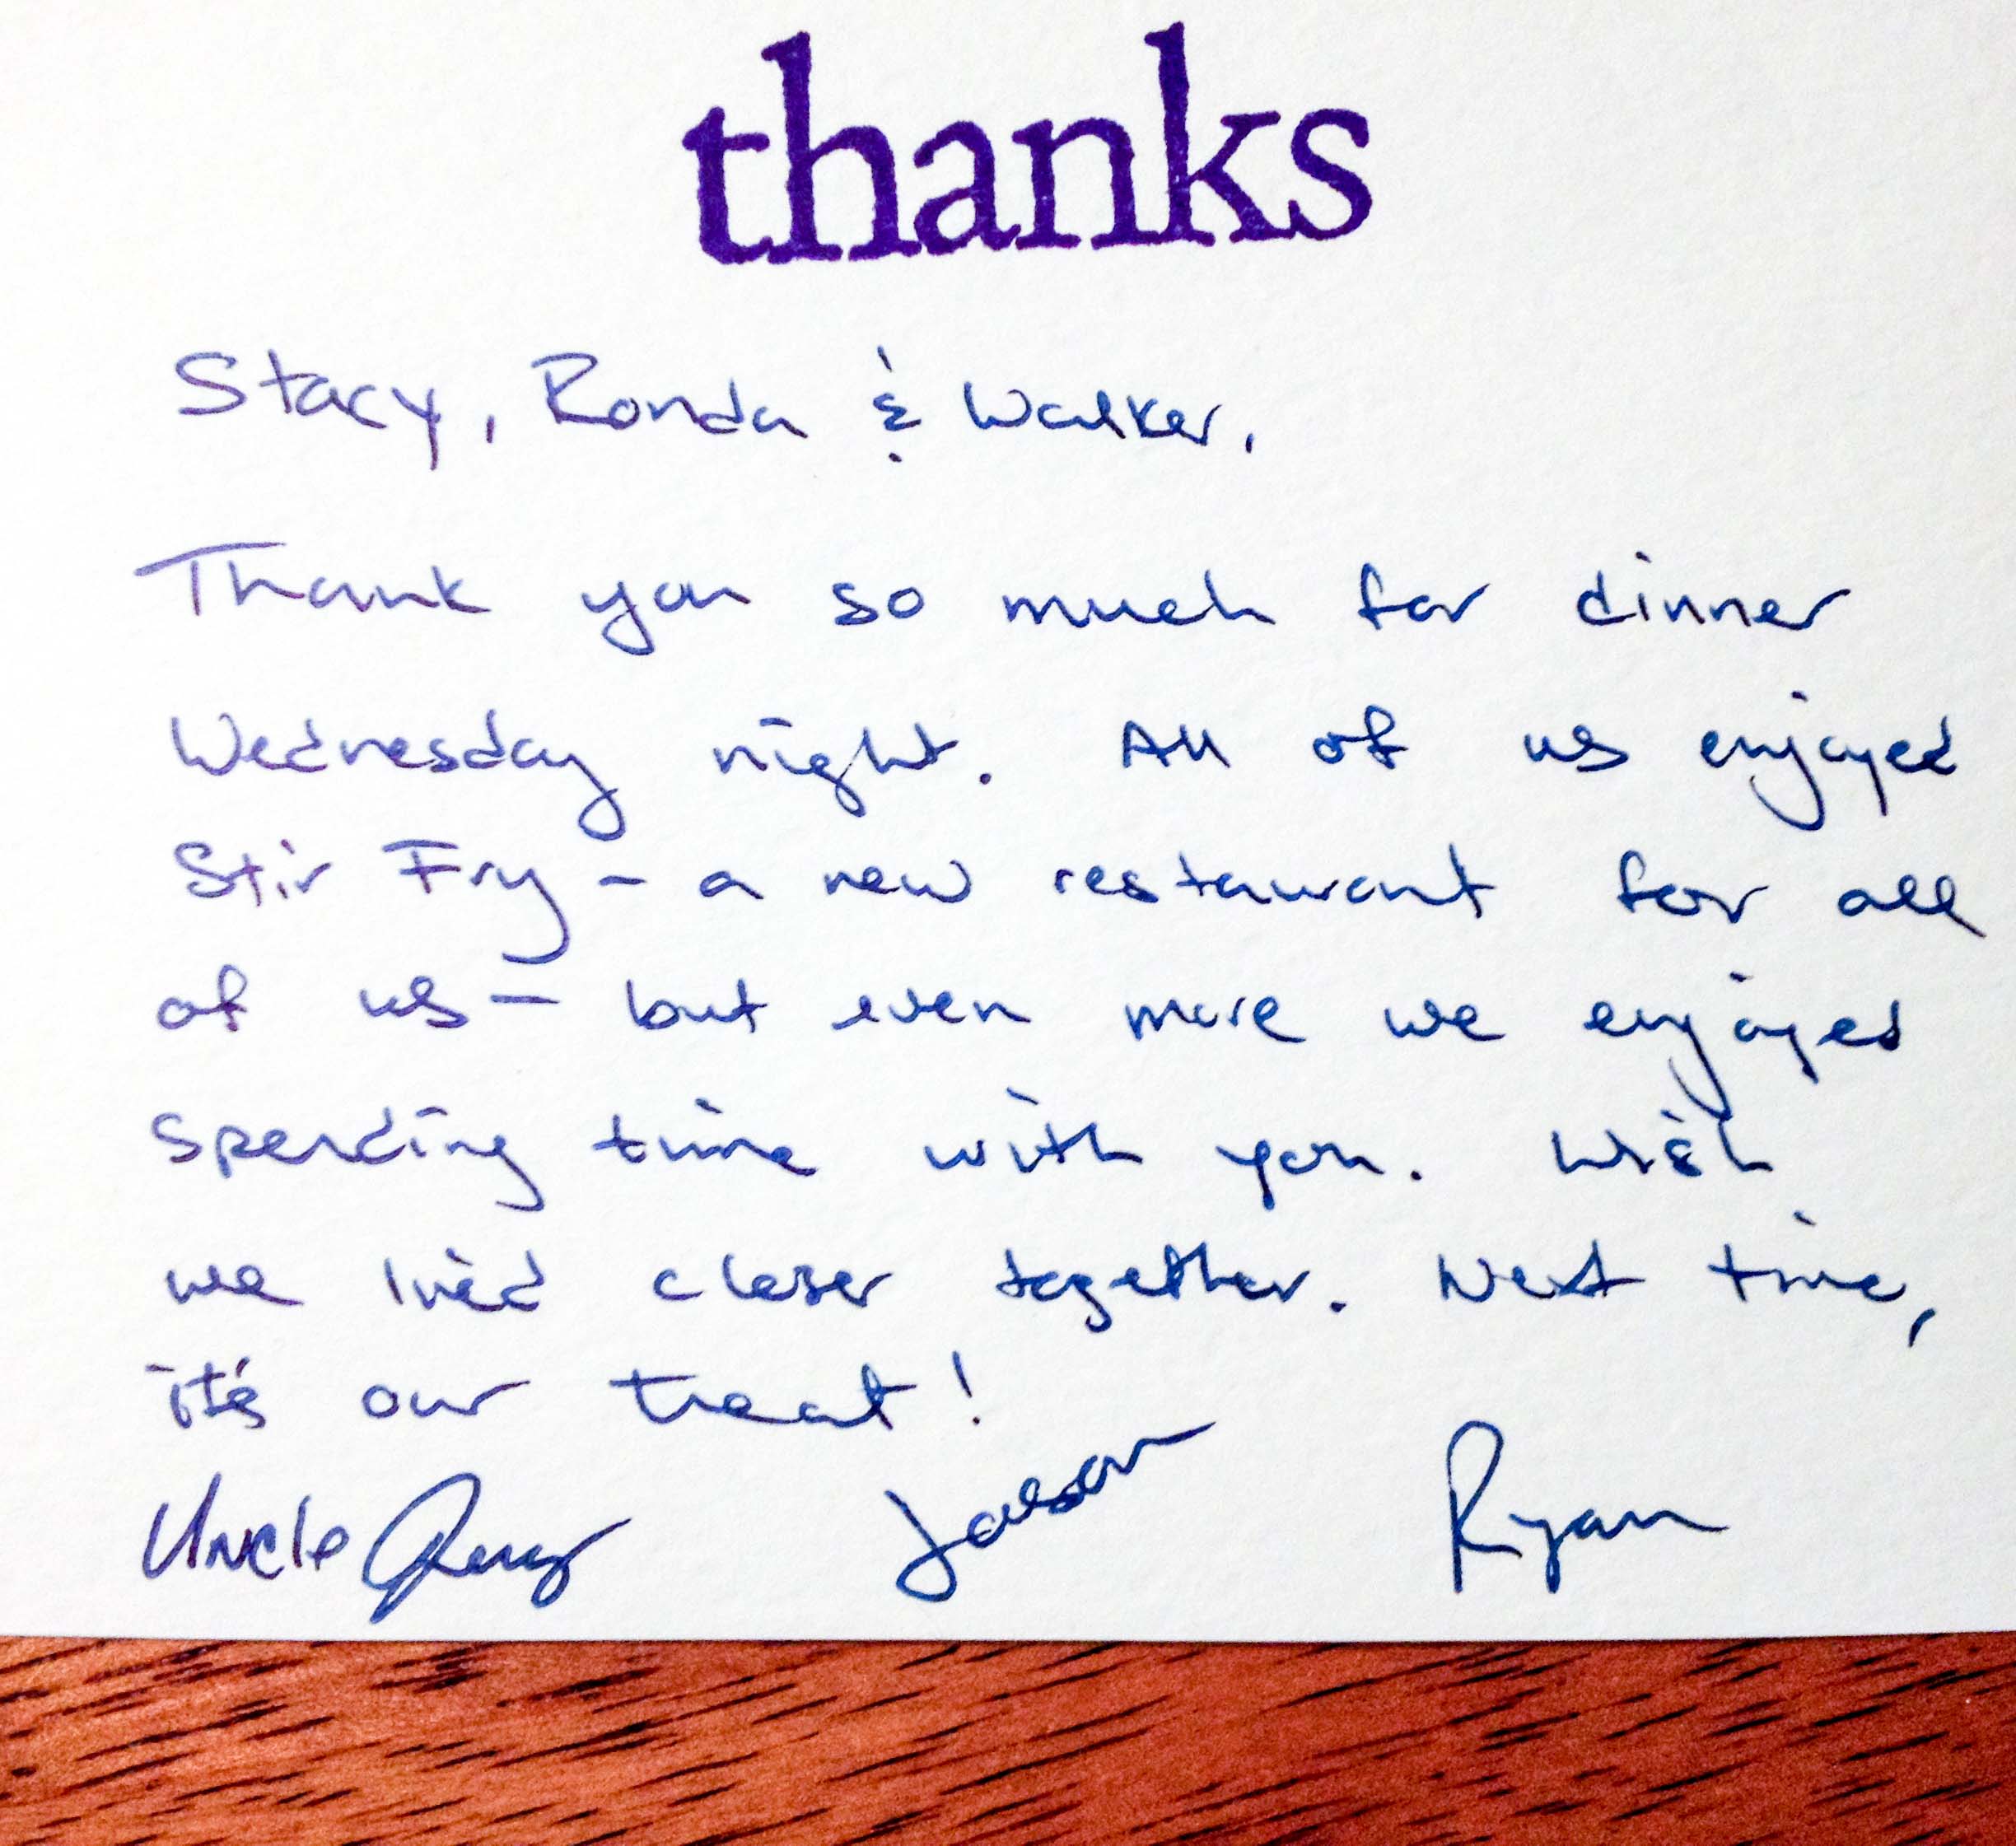 thanks
Stacy, Ronda & Walker,
Thank you so much for dinner
Wednesday night. All of us enjoyed
Stir Fry - a new restaurant for all
of us - but even more we enjoyed
spending time with you. Wish
we lived closer together. Next time,
it's our treat!
Uncle Ryan